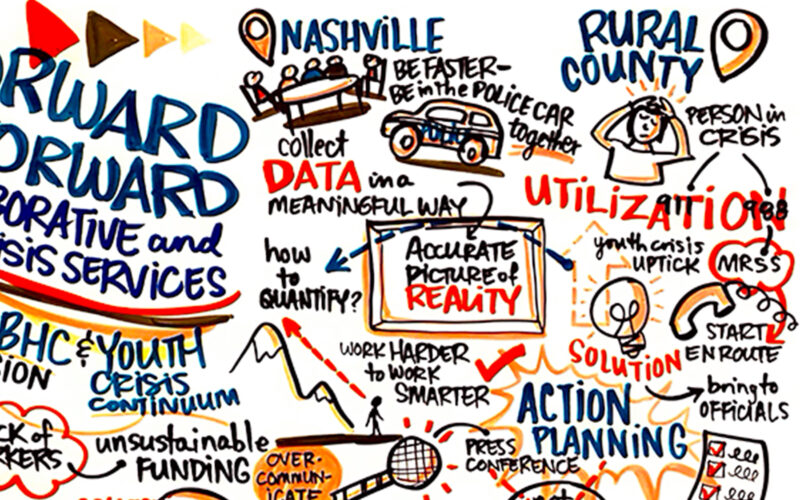 NASHVILLE
BE FASTER–
BE in the POLICE CAR
together
POLICE
collect
DATA in a
MEANINGFUL WAY
how
to
QUANTIFY?
ACCURATE
PICTURE of
REALITY
RURAL
COUNTY
PERSON in
CRISIS
UTILIZATION
911
988
youth crisis
UPTICK
MRSS
START
EN ROUTE
SOLUTION
bring to
OFFICIALS
ORWARD
ORWARD
BORATIVE and
ISIS SERVICES
BHC & YOUTH
CRISIS
CONTINUUM
ION
CK of
RKERS
unsustainable
FUNDING
WORK HARDER
to WORK
SMARTER
OVER-
COMMUN-
ICATE
PRESS
CONFERENCE
ACTION
PLANNING